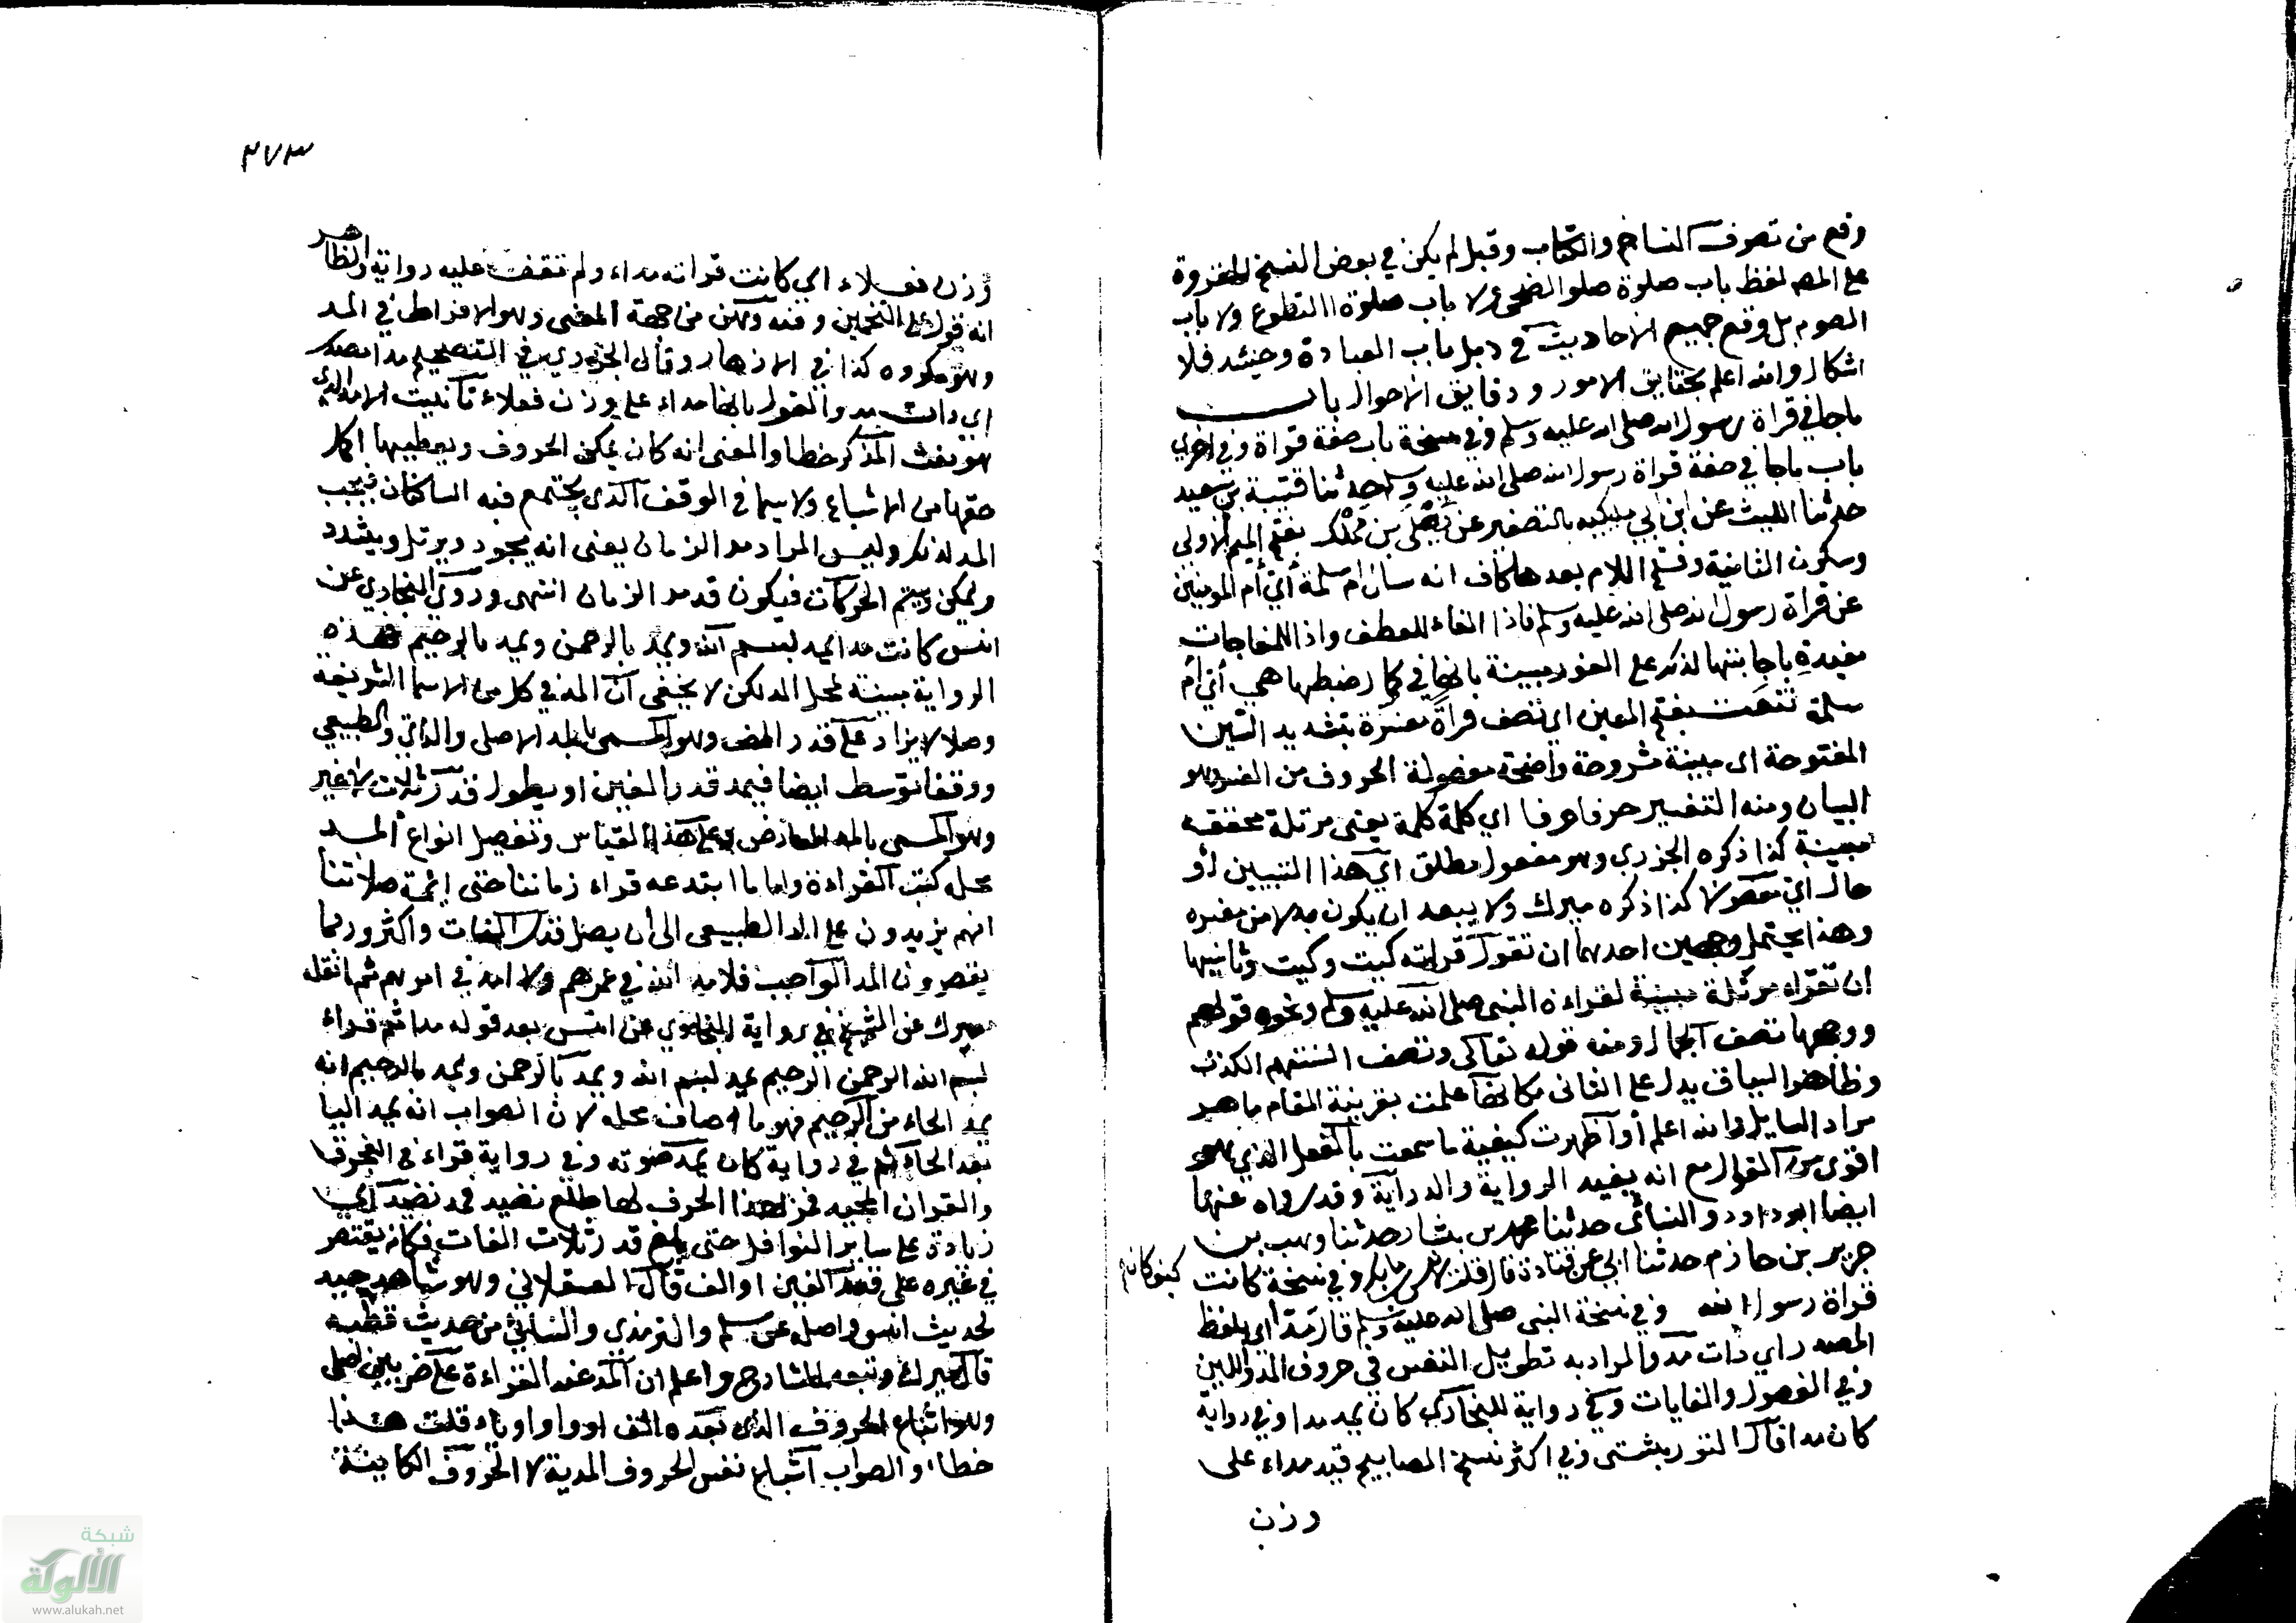 وقع من تصرف النساخ والكتاب وقيل لم يكن في بعض النسخ المقروة
على المص لفظ باب صلوة الضحى ولا باب صلوة التطوع ولا باب
الصوم بل وقع جميع الاحاديث في ذيل باب العبادة وحينئذ فلا
اشكال والله اعلم بحقايق الامور ودقايق الاحوال باب
ماجا في قراة رسول الله صلى الله عليه وسلم وفي نسخة باب صفة قراة وفي اخرى
باب ماجا في صفة قراة رسول الله صلى الله عليه وسلم حدثنا قتيبة بن سعيد
حدثنا الليث عن ابن ابي مليكه بالتصغير عن يعلى بن مملك بفتح الميم الاولى
وسكون الثانية وفتح اللام بعدها كاف انه سال ام سلمة أي أم المومنين
عن قراة رسول الله صلى الله عليه وسلم فاذا الفاء للعطف واذا للمفاجات
مفيدة باجابتها لذكر على الفور مبينة بانها في كمال ضبطها هي أي أم
سلمة تنعت بفتح العين اي تصف قراةً مفسرة بتشديد السين
المفتوحة اى مبينة مشروحة واضحة مفصولة الحروف من الفسر وهو
البيان ومنه التفسير حرفا حرفا اي كلمة كلمة يعنى مرتلة محققة
مبينة كذا ذكره الجزري وهو مفعول مطلق اي هذا التبيين أو
حال اي مفصولا كذا ذكره ميرك ولا يبعد ان يكون بدلا من مفسره
وهذا يحتمل وجهين احدهما ان تقول قراته كيت وكيت وثانيهما
ان تقراه مرتلة مبينة لقراءة النبى صلى الله عليه وسلم ونحوه قولهم
ووجهها تصف الجمال ومنه قوله تعالى وتصف السنتهم الكذب
وظاهر السياق يدل على الثانى مكانها علمت بقرينة المقام ما هو
مراد السايل والله اعلم أو اظهرت كيفية ما سمعت بالفعل الذي هو
اقوى من القول مع انه يفيد الرواية والدراية وقد رواه عنها
ايضا ابو داود والنسائى حدثنا محمد بن بشار حدثنا وهب بن
جرير بن حازم حدثنا ابي عن قتادة قال قلت لانس بن مالك وفي نسخة كانت
قراة رسول الله وفي نسخة النبى صلى الله عليه وسلم قال مدّا اى بلفظ
المصدر اي ذات مد والمراد به تطويل النفس في حروف المد واللين
وفي الفصول والغايات وفي رواية للبخارى كان يمد مدا وفي رواية
كان مدا قال التوربشتى وفي اكثر نسخ المصابيح قيد مداء على
وزن
٢٧٣
وزن فعلاء اي كانت قراته مداء ولم نقف عليه رواية والظاهر
انه قول على التخمين وفيه وهن من جهة المعنى وهو الافراط في المد
وهو مكروه كذا في الازهار وقال الجزري في التصحيح مدا مصدر
اي ذات مد والقول بانها مداء على وزن فعلاء تانيث الامد الذي
هو نعت المذكر خطا والمعنى انه كان يمكن الحروف ويعطيها اكمل
حقها من الاشباع ولا سيما في الوقف الذي يجتمع فيه الساكنان فيجب
المد لذلك وليس المراد مد الزمان يعنى انه يجود ويرتل ويشدد
ويمكن ويتم الحركات فيكون قد مد الزمان انتهى وروى البخاري عن
انس كانت مدا يمد ببسم الله ويمد بالرحمن ويمد بالرحيم فهذه
الرواية مبينة لمحل المد لكن لا يخفى ان المد في كل من الاسما الشريفة
وصلا لا يزاد على قدر الف وهو المسمى بالمد الاصلي والذاتي والطبيعي
ووقفا توسط ايضا فيمد قدر الفين او يطول قدر ثلاث لا غير
وهو المسمى بالمد العارض وعلى هذا القياس وتفصيل انواع المد
محله كتب القراءة واما ما ابتدعه قراء زماننا حتى ائمة صلاتنا
انهم يزيدون على المد الطبيعى الى أن يصل قدر الفات واكثر وربما
يقصرون المد الواجب فلا مد الله في عمرهم ولا امد في امرهم ثم ما نقله
ميرك عن الشيخ في رواية البخاري عن انس بعد قوله مدا ثم قراء
بسم الله الرحمن الرحيم يمد ببسم الله ويمد بالرحمن ويمد بالرحيم انه
يمد الحاء من الرحيم فهو ما صادف محله لان الصواب انه يمد اليا
بعد الحاء ثم في رواية كان يمد صوته وفي رواية قراء في الفجر ق
والقران المجيد فمر لهذا الحرف لها طلع نضيد فمد نضيد أي
زيادة على ساير الفواصل حتى بلغ قدر ثلاث الفات فكانه يقتصر
في غيره على قدر الفين او الف قال العسقلاني وهو شاهد جيد
لحديث انس واصله عند مسلم والترمذي والنسائي من حديث قطبة
قال ميرك وتبعه الشارح واعلم ان المد عند القراءة على ضربين اصلي
وهو اشباع الحروف الذى بعده الف او واو او ياء قلت هذا
خطا، والصواب اشباع نفس الحروف المدية لا الحروف الكاينة
شبكة
الألوكة
www.alukah.net